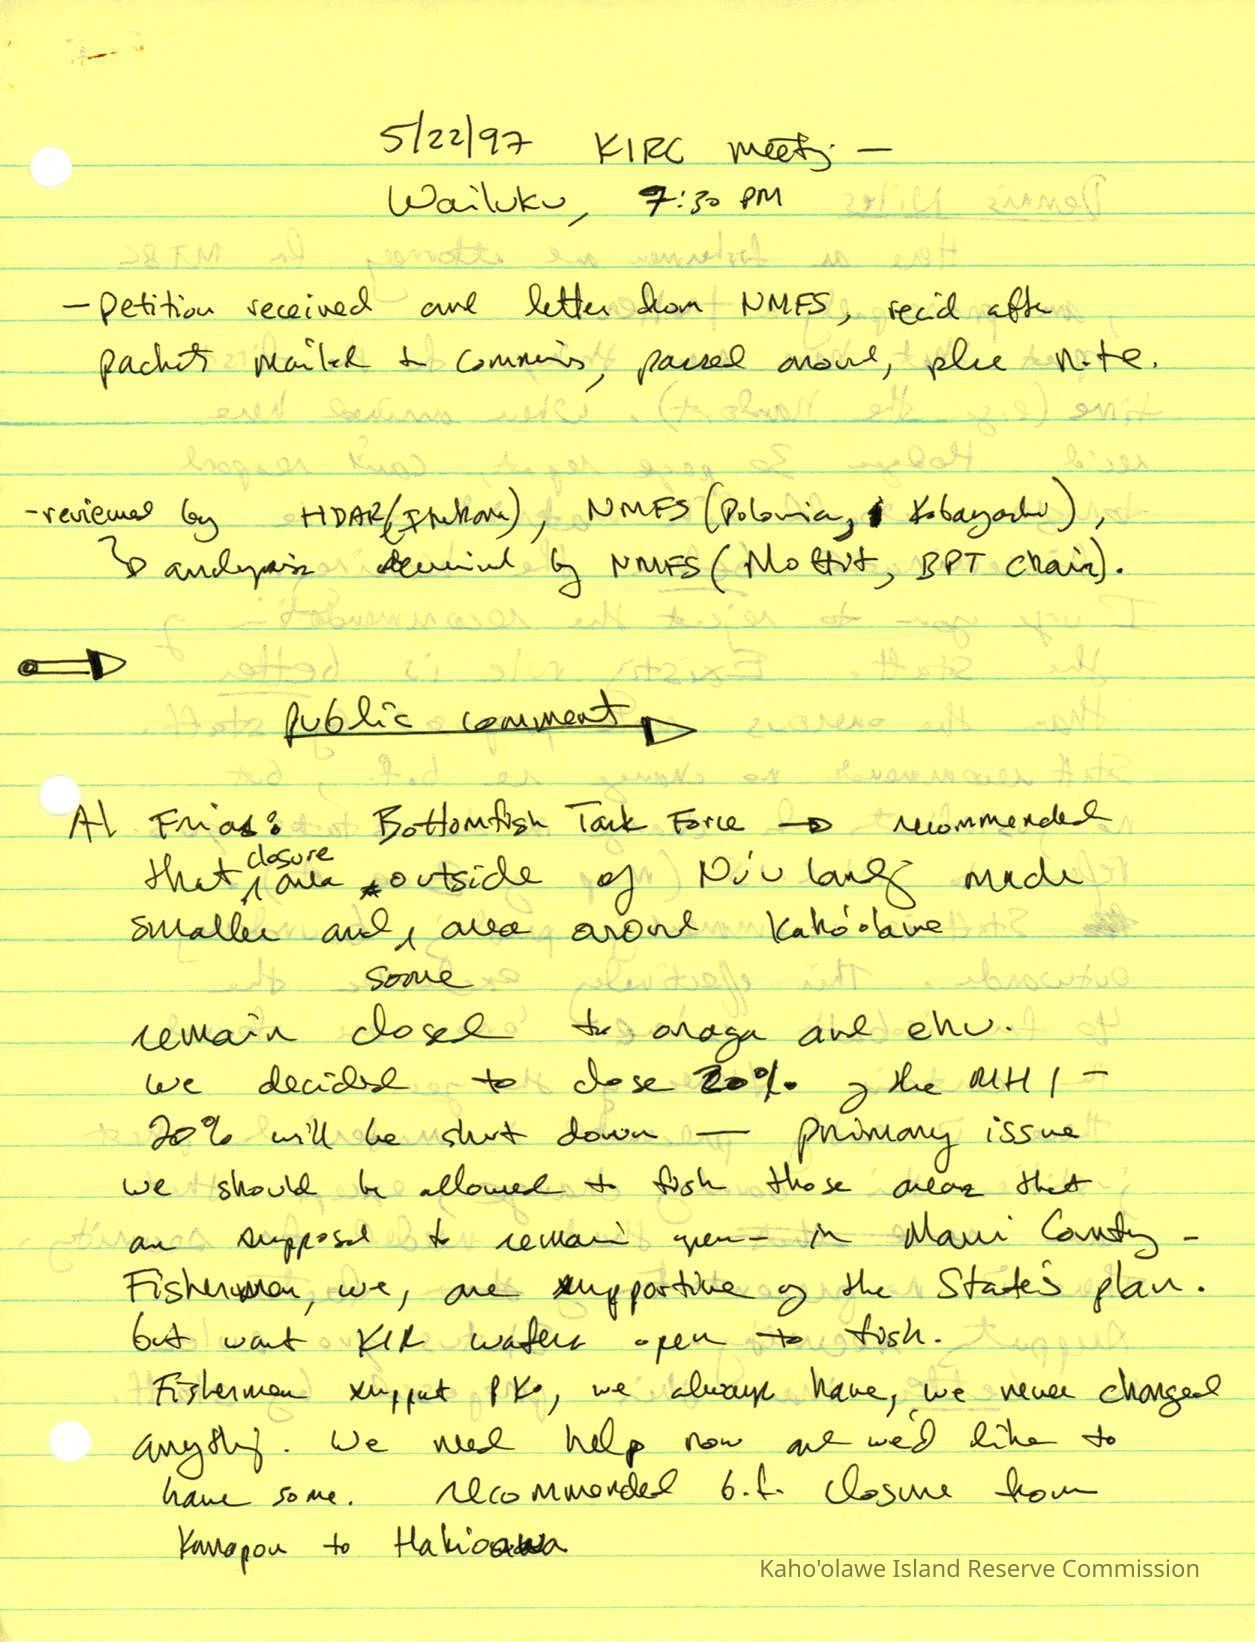 5/22/97 KIRC meetg. —
Wailuku, 7:30 PM
— Petition received and letter from NMFS, rec'd after
packets mailed to Commrs, passed around, plse note.
- reviewed by HDAR ( ), NMFS (Polovina, Kobayashi),
analysis by NMFS (Moffitt, BPT Chair).
public comment
Al Frias: Bottomfish Task Force → recommended
that closure area outside of Niu made
smaller and some area around Kaho'olawe
remain closed to onaga and ehu.
We decided to close 20% of the MHI —
20% will be shut down — primary issue
we should be allowed to fish those areas that
are supposed to remain open — in Maui County -
Fishermen, we, are supportive of the State's plan.
but want KIR waters open to fish.
Fishermen support PKO, we always have, we never changed
anythg. We need help now and we'd like to
have some. recommended b.f. closure from
Kanapou to Hakioawa
Kaho'olawe Island Reserve Commission